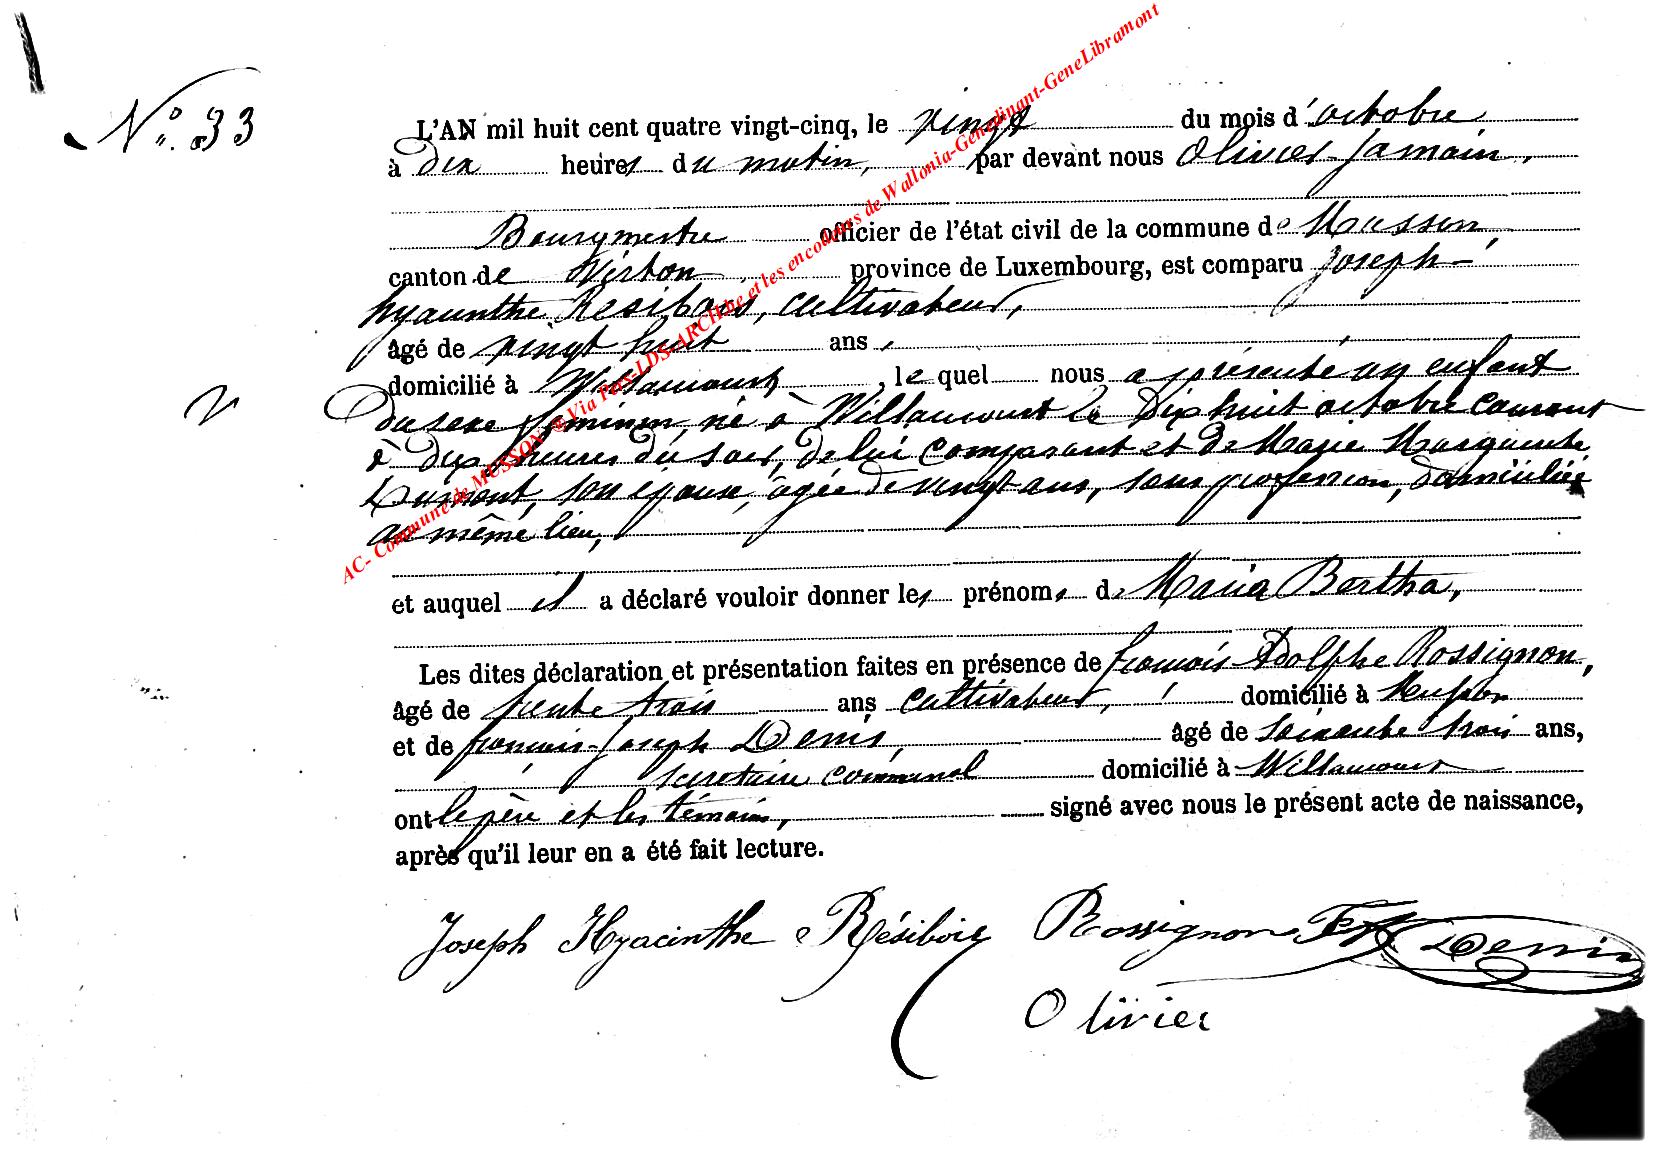 N° 33
L'AN mil huit cent quatre vingt-cinq, le vingt du mois d'octobre
à dix heures du matin, par devant nous Olivier Jamain,
Bourgmestre officier de l'état civil de la commune de Musson,
canton de Virton province de Luxembourg, est comparu Joseph-
hyacinthe Resibois, cultivateur,
âgé de vingt huit ans,
domicilié à Willancourt, le quel nous a présenté un enfant
Du sexe féminin, né à Willancourt le Dix huit octobre courant
à dix heures du soir, de lui comparant et de Marie Marguerite
Dumont, son épouse, âgée de vingt ans, sans profession, domiciliée
au même lieu,
et auquel il a déclaré vouloir donner les prénoms de Maria Bertha,
Les dites déclaration et présentation faites en présence de françois Adolphe Rossignon,
âgé de trente trois ans cultivateur, domicilié à Musson
et de françois-Joseph Denis, âgé de soixante trois ans,
secrétaire communal domicilié à Willancourt
ont le père et les témoins, signé avec nous le présent acte de naissance,
après qu'il leur en a été fait lecture.
Joseph Hyacinthe Résibois Rossignon F A Denis
Olivier
AC- Commune de MUSSON- Via Pros-LDS-ARCH.be et les encodeurs de Wallonia-Genedinant-GeneLibramont